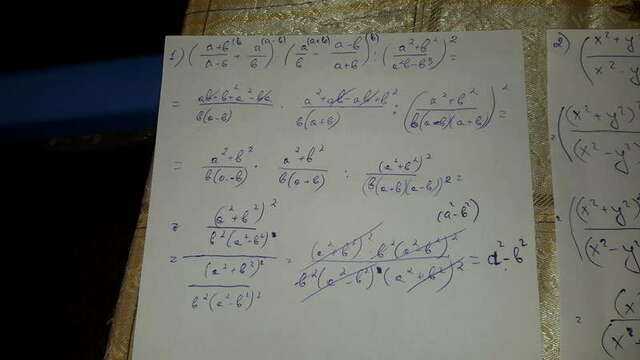 1) ((a+b)/(a-b) (b + a/b (a-b)) (a/b (a+b) - (a-b)/(a+b) (b)) : ((a²+b²)/(a²b-b³))² =
= (ab-b²+a²-ba)/(b(a-b)) · (a²+ab-ab+b²)/(b(a+b)) : ((a²+b²)/(b(a-b)(a+b)))² =
= (a²+b²)/(b(a-b)) · (a²+b²)/(b(a+b)) : (a²+b²)²/(b(a+b)(a-b))² =
= ((a²+b²)²/(b²(a²-b²)))/((a²+b²)²/(b²(a²-b²)²)) = ((a²+b²)² b²(a²-b²)² (a²-b²))/(b²(a²-b²)(a²+b²)²) = a²-b²
2) ((x²+y
x²-y
= ((x²+y²)
(x²-y²)
= ((x²+y²)
(x²-y
= (x
(x